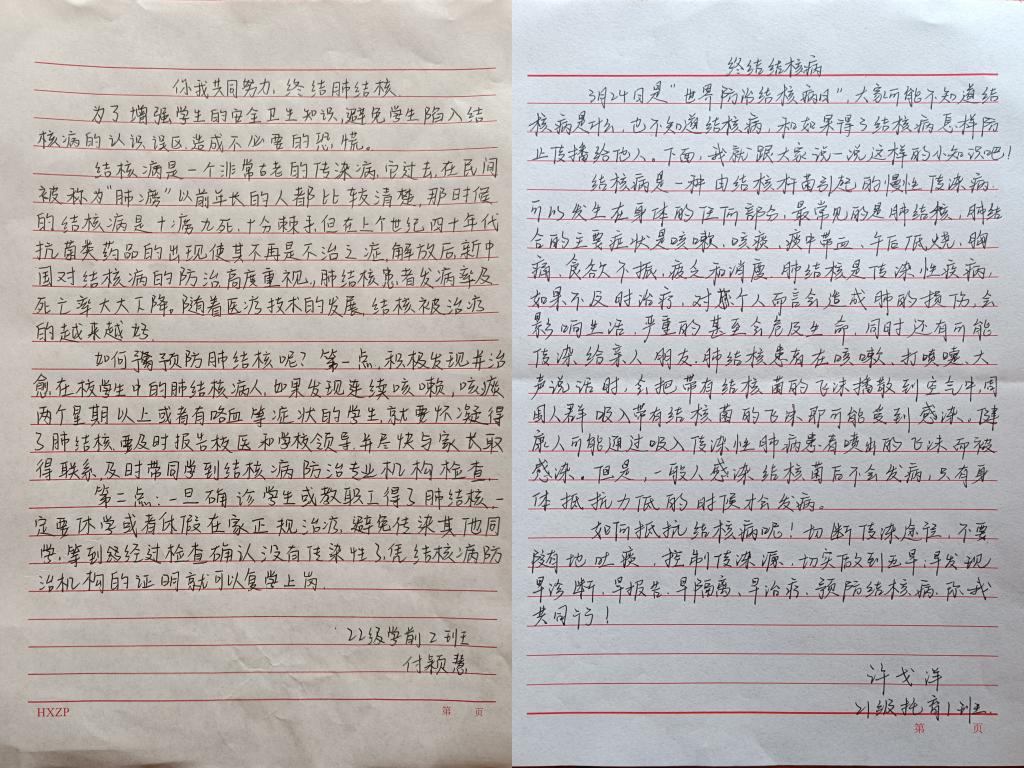 你我共同努力,终结肺结核
为了增强学生的安全卫生知识,避免学生陷入结
核病的认识误区,造成不必要的恐慌。
结核病是一个非常古老的传染病,它过去,在民间
被称为“肺痨”以前年长的人都比较清楚,那时候
的结核病是十痨九死,十分棘手,但在上个世纪四十年代
抗菌类药品的出现使其不再是不治之症,解放后,新中
国对结核病的防治高度重视,肺结核患者发病率及
死亡率大大下降。随着医疗技术的发展,结核被治疗
的越来越好.
如何预防肺结核呢?第一点,积极发现并治
愈在校学生中的肺结核病人,如果发现连续咳嗽,咳痰
两个星期以上或者有咯血等症状的学生,就要怀疑得
了肺结核,要及时报告校医和学校领导,并尽快与家长取
得联系,及时带同学到结核病防治专业机构检查.
第二点:一旦确诊学生或教职工得了肺结核,一
定要休学或者休假在家正规治疗,避免传染其他同
学,等到经过检查确认没有传染性了,凭结核病防
治机构的证明就可以复学上岗.
22级学前2班
付颖慧
HXZP
第 页
终结结核病
3月24日是“世界防治结核病日”,大家可能不知道结
核病是什么,也不知道结核病,和如果得了结核病怎样防
止传播给他人。下面,我就跟大家说一说这样的小知识吧!
结核病是一种由结核杆菌引起的慢性传染病,
可以发生在身体的任何部分,最常见的是肺结核,肺结
合的主要症状是咳嗽、咳痰,痰中带血,午后低烧,胸
痛,食欲不振,疲乏和消瘦,肺结核是传染性疾病,
如果不及时治疗,对个人而言会造成肺的损伤,会
影响生活,严重的甚至会危及生命,同时还有可能
传染给亲人朋友.肺结核患者在咳嗽、打喷嚏、大
声说话时,会把带有结核菌的飞沫播散到空气中,周
围人群吸入带有结核菌的飞沫即可能受到感染、健
康人可能通过吸入传染性肺病患者喷出的飞沫而被
感染。但是,一般人感染结核菌后不会发病,只有身
体抵抗力低的时候才会发病。
如何抵抗结核病呢!切断传染途径,不要
随地吐痰,控制传染源,切实做到五早,早发现
早诊断、早报告、早隔离、早治疗,预防结核病,你我
共同行!
许戈洋
21级托育1班.
第 页